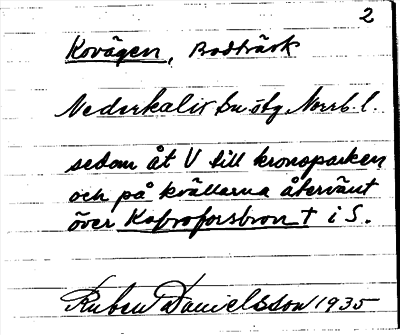 2
Kovägen, Bodträsk
Nederkalix sn östg Norrb. l.
sedan åt V till kronoparken
och på kvällarna återvänt
över Kafroforsbron † i S.
Ruben Danielsson 1935